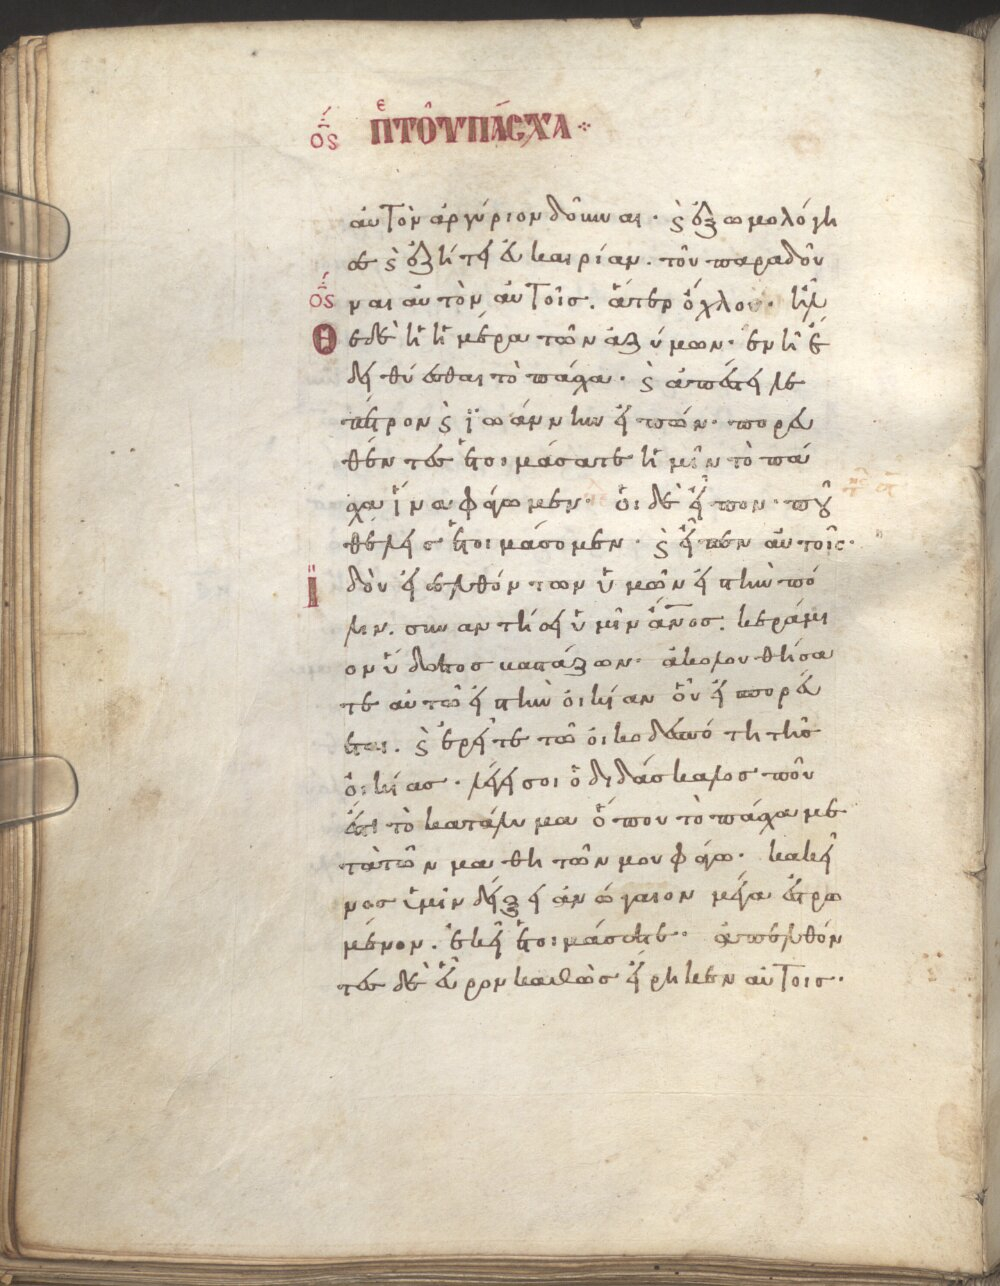 ος πε τοῦ πάσχα
αυτὸν ἀργύριον δοῦναι· ϛ ἐξωμολόγη
σε ϛ ἐζήτει ἐυκαιρίαν. τοῦ παραδοῦ
ναι αὐτὸν αὐτοῖς. ἄτερ ὄχλου· ἦλ
θε δὲ ἡ ἡμέρα τῶν ἀζύμων· ἐν ἧ ἔ
δει θύεσθαι τὸ πάσχα· ϛ ἀπέστειλε
πέτρον ϛ ϊωάννην ειπών· πορευ
θέντες ἑτοιμάσατε ἡμῖν τὸ πά
σχα ΐνα φάγωμεν· ὁι δὲ εἶπον· ποῦ
θέλεις ἑτοιμάσομεν· ϛ εἶπεν αὐτοῖς·
ϊδοὺ εἰσελθόντων ὑμῶν εἰς τὴν πό
λιν. συναντήσει ὑμῖν ἄνος. κεράμι
ον ὕδατος βαστάζων· ἀκολουθήσα
τε αὐτῶ εἰς τὴν ὀικίαν οὗ εἰσπορεύ
εται. ϛ ἐρεῖτε τῶ ὀικοδεσπότη τῆς
ὀικίας· λέγει σοι ὁ διδάσκαλος ποῦ
ἐστι τὸ κατάλυμα ὅπου τὸ πάσχα με
τὰ τῶν μαθητῶν μου φάγω· κακεῖ
νος ὑμῖν δείξει ἀνώγαιον μέγα ἐστρω
μένον. ἐκεῖ ἑτοιμάσατε· ἀπελθόν
τες δὲ εὗρον καθὼς εἴρηκεν αὐτοις·